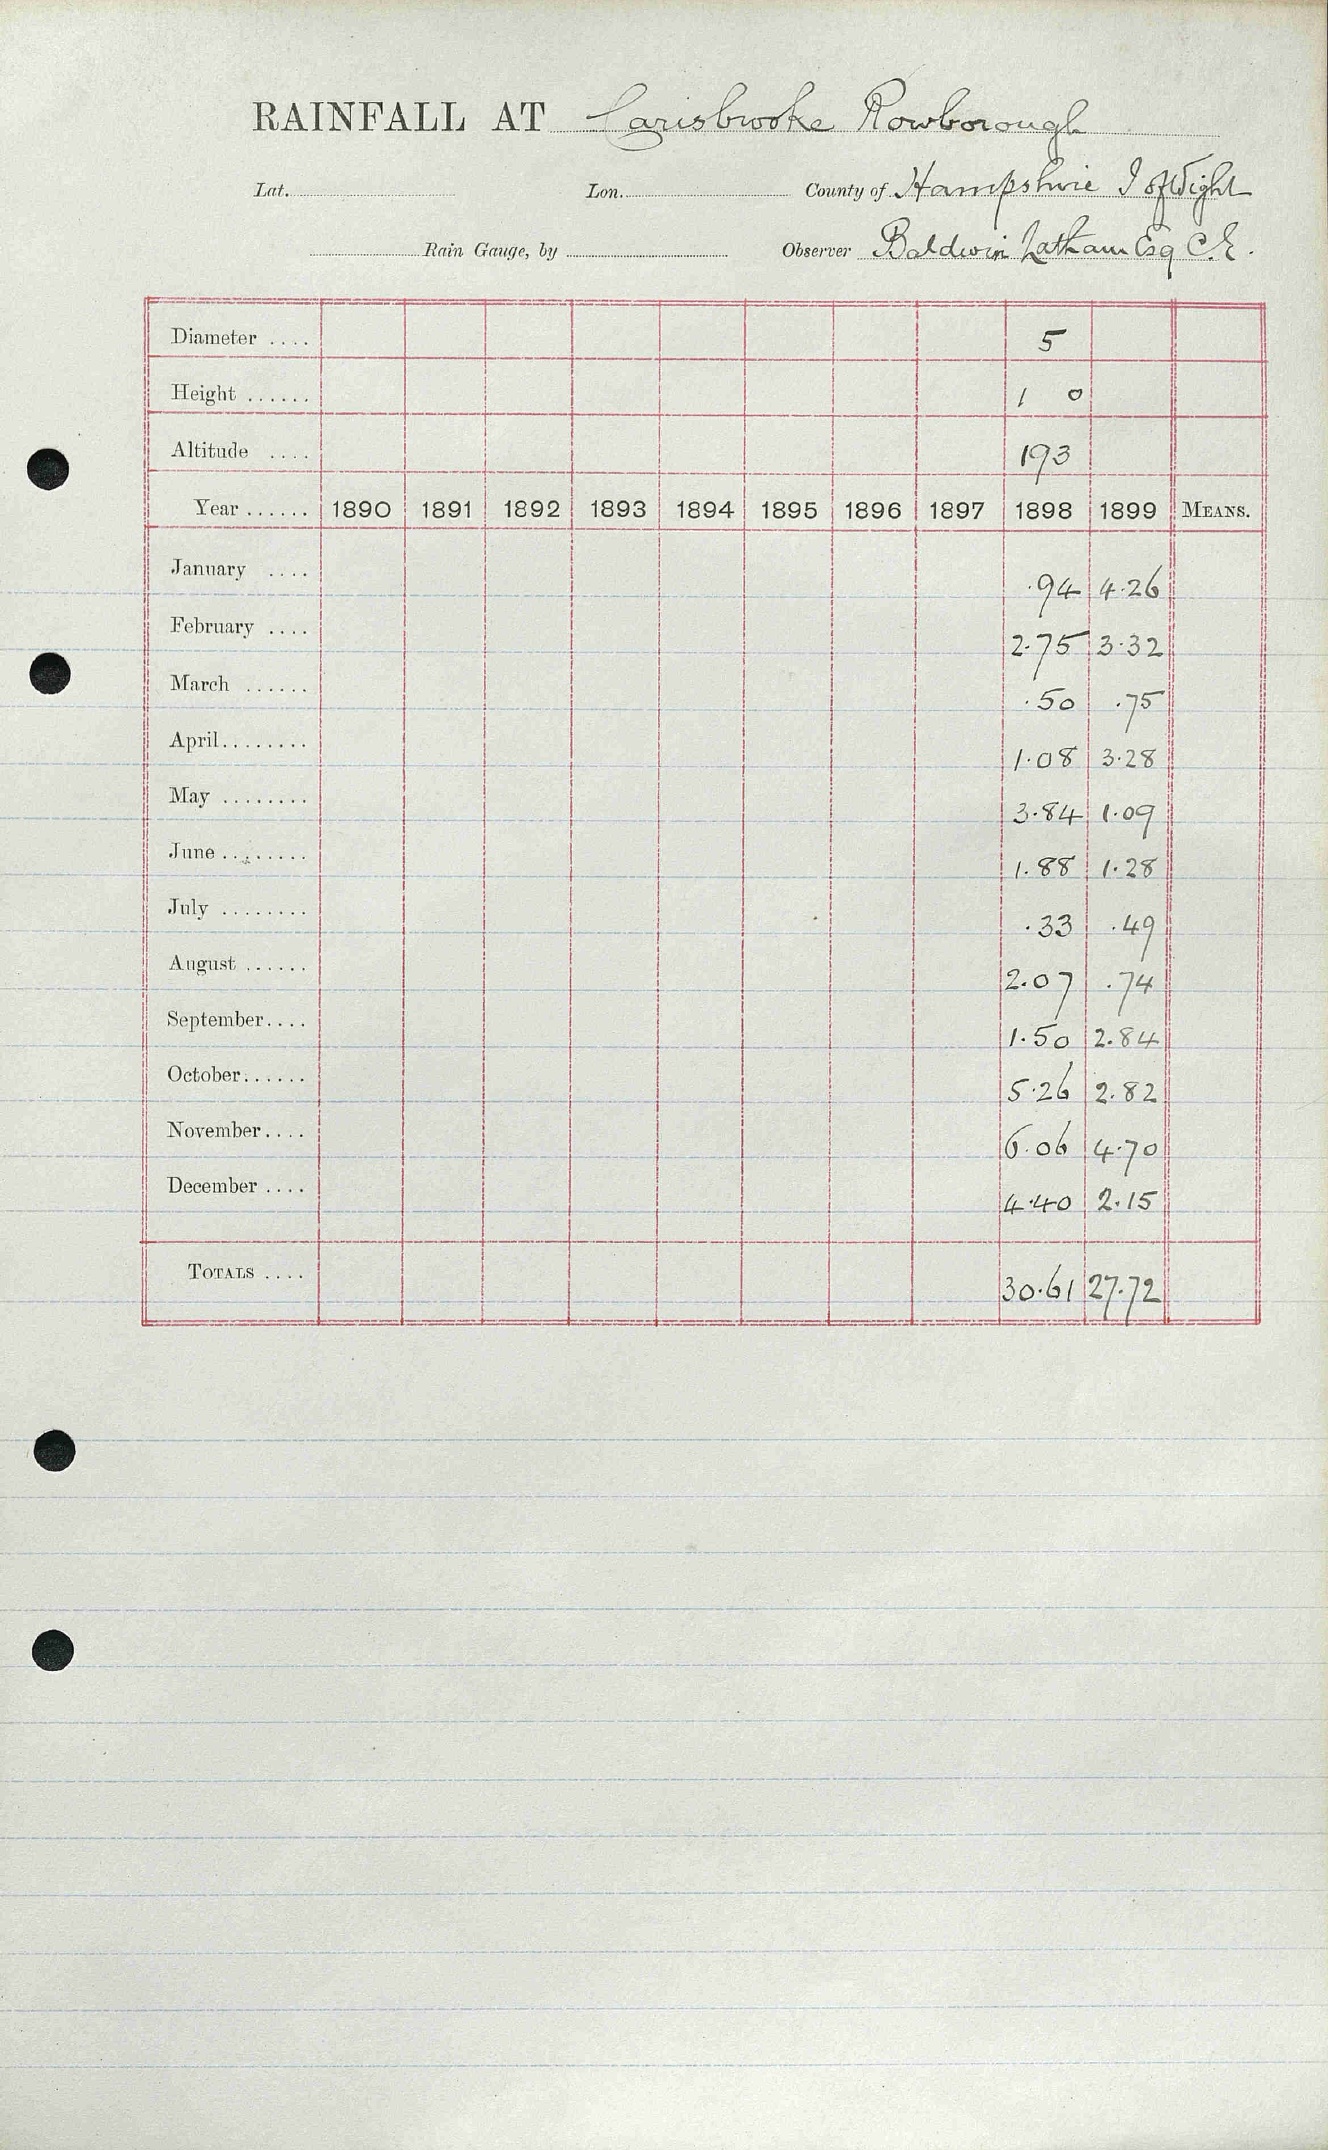 RAINFALL AT Carisbrooke Rowborough
Lat. Lon. County of Hampshire I of Wight
Rain Gauge, by Observer Baldwin Latham Esq C.E.
Diameter .... 5
Height ...... 1 0
Altitude .... 193
Year ...... 1890 1891 1892 1893 1894 1895 1896 1897 1898 1899 MEANS.
January .... .94 4.26
February .... 2.75 3.32
March ...... .50 .75
April........ 1.08 3.28
May ........ 3.84 1.09
June ........ 1.88 1.28
July ........ .33 .49
August ...... 2.07 .74
September.... 1.50 2.84
October...... 5.26 2.82
November.... 6.06 4.70
December .... 4.40 2.15
TOTALS .... 30.61 27.72